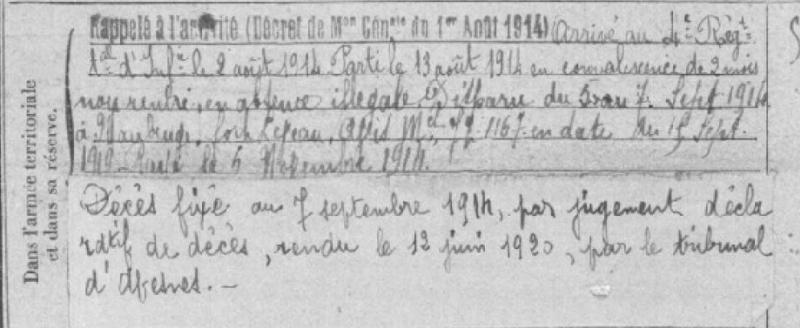 Dans l'armée territoriale
et dans sa réserve.
Rappelé à l'activité (Décret de Mon Génale du 1er Août 1914) Arrivé au 4e Régt
tal d'Infie le 2 août 1914 Parti le 13 août 1914 en convalescence de 2 mois
non rentré, en absence illégale. Disparu du 5 au 7. Sept 1914
à Maubeuge, Avis Mel en date du 15 Sept.
1919 le 5 Novembre 1914.
Décès fixé au 7 septembre 1914, par jugement décla
ratif de décès, rendu le 12 juin 1920, par le tribunal
d'Avesnes. –